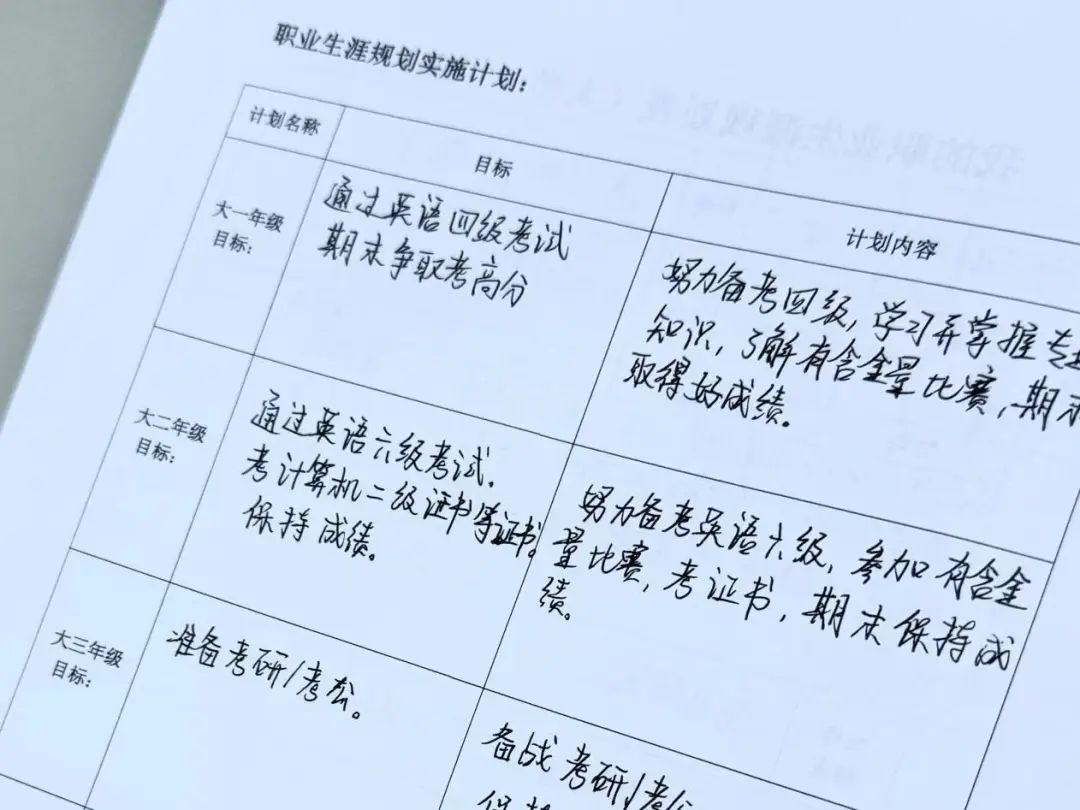 职业生涯规划实施计划：
计划名称
目标
计划内容
大一年级
目标：
通过英语四级考试
期末争取考高分
努力备考四级，学习并掌握专
知识，了解有含金量比赛，期末
取得好成绩。
大二年级
目标：
通过英语六级考试．
考计算机二级证书等证书。
保持成绩。
努力备考英语六级，参加有含金
量比赛，考证书，期末保持成
绩。
大三年级
目标：
准备考研/考公。
备战考研/考公
保持